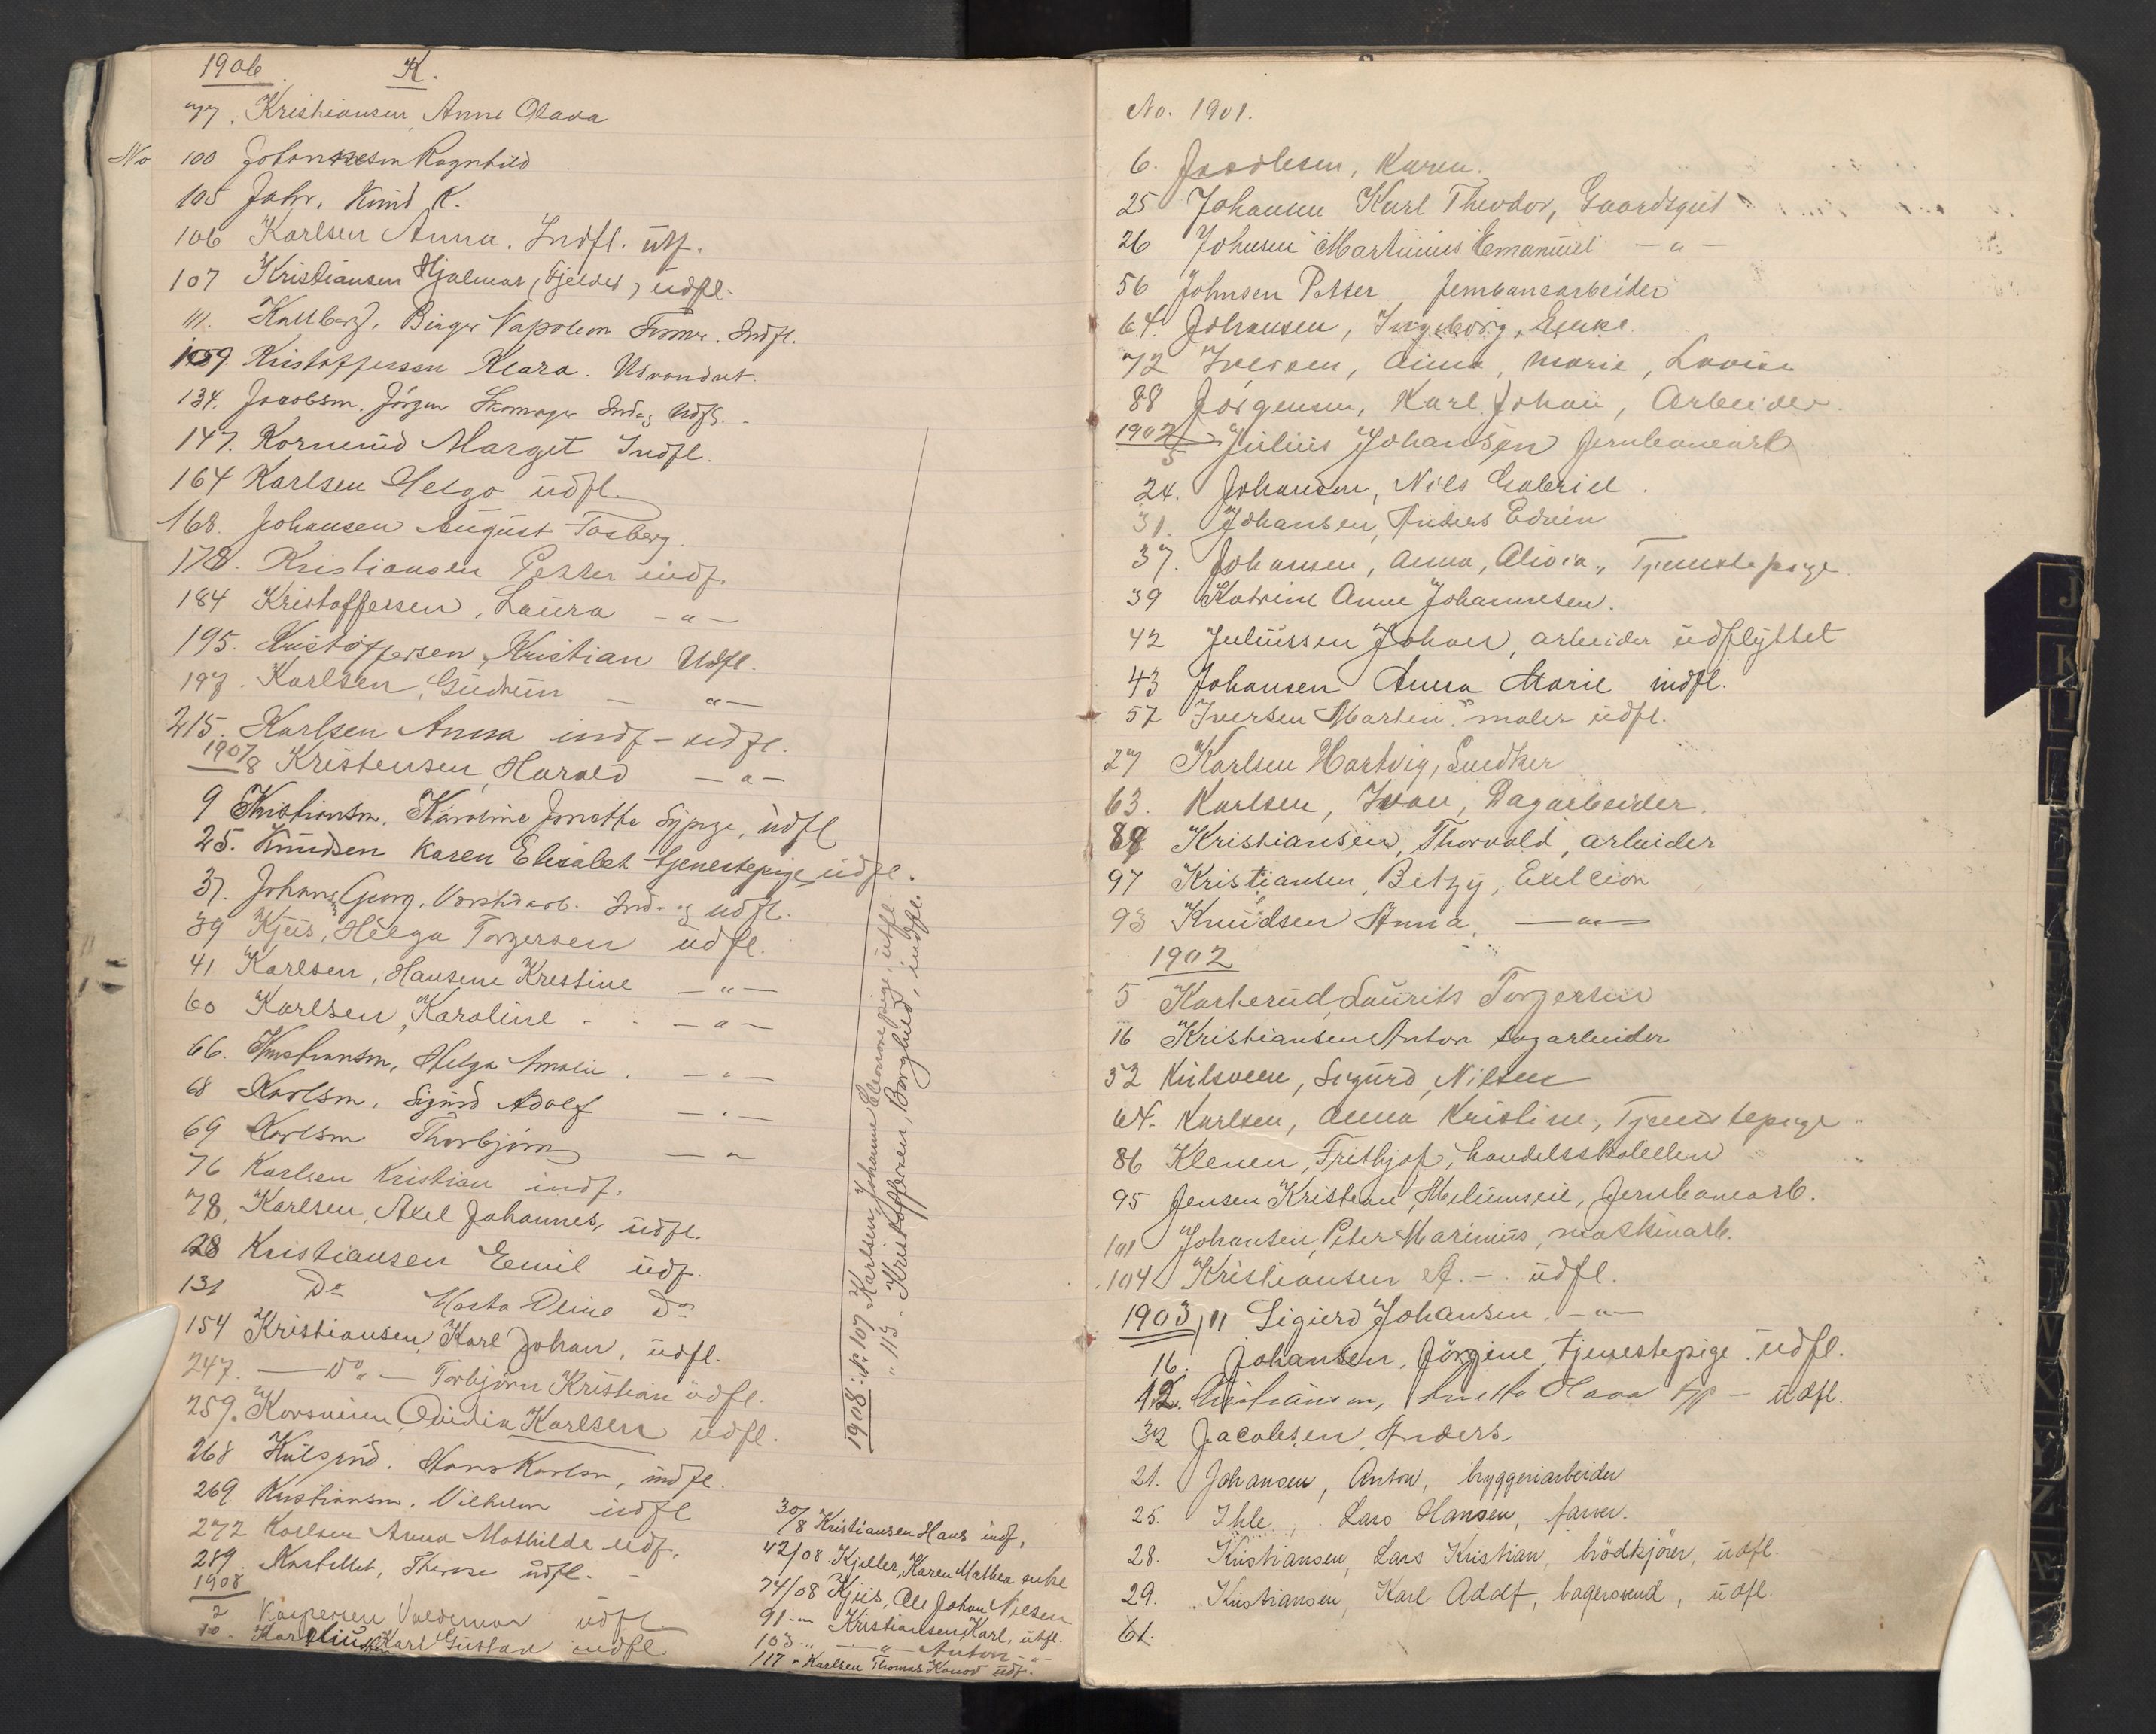 1906. K.
77. Kristiansen, Anne Olava
No 100 Johansen Ragnhild
105 Jahr, Knud K.
106 Karlsen Anna. Indfl. utf.
107 Kristiansen Hjalmar, (Fjeldet) udfl.
111. Kullberg, Birger Napoleon Indfl.
109. Kristoffersen Klara. Udvandret.
134. Jacobsen, Jörgen Skomager Ind og Udfl.
147. Kornerud Marget Indfl.
164 Karlsen Helga udfl.
168. Johansen August Fosberg.
178. Kristiansen Petter indf.
184 Kristoffersen, Laura -"-
195. Kristoffersen, Kristian Udfl.
197. Karlsen, Gudrun - "-
215. Karlsen Anna indf - udfl.
1907/8 Kristensen, Harald -"-
9 Kristiansen, Karoline Jonette Sypige, udfl
25. Knudsen Karen Elisabet tjenestepige udfl.
37. Johans Georg. Ind- og udfl.
39 Kjus, Helga Torgersen udfl.
41 Karlsen, Hansine Kristine -"-
60 Karlsen, Karoline -"-
66. Kristiansen, Helga Amalie. -"-
68 Karlsen, Sigurd Adolf -"-
69 Karlsen Thorbjörn -"-
76 Karlsen Kristian indf.
78. Karlsen, Axel Johannes, udfl.
128 Kristiansen Emil udf.
131 Do Marta Oline Do
154 Kristiansen, Karl Johan, udfl.
247. - Do - Torbjörn Kristian udfl.
259. Korsveien Ovidia Karlsen udfl.
268 Kulsrud, Hans Karlsen, indfl.
269. Kristiansen, Vilhelm indfl
272 Karlsen Anna Mathilde udf.
289. Kastellet, Therese udfl.
1908
2 Kaspersen Valdemar udfl
10. Karl Gustav indfl.
30/8 Kristiansen Hans indf.
42/08 Kjeller, Karen Mathea enke
74/08 Kjus, Ole Johan Nilsen
91-"- Kristiansen Karl, utfl.
103 " -"- Anton -"-
117 " Karlsen Thomas Konod udf.
1908: No 107 Karlsen, Johanne Eleonore pige, utfl.
" 113 - Kristoffersen, Borghild, indfl.
No. 1901.
6. Jacobsen, Karen.
25 Johansen Karl Theodor, Gaardsgut
26 Johnsen Martinius Emanuel -"-
56 Johnsen Petter, Jernbanearbeider
64. Johansen, Ingeborg, Enke.
72 Iversen, Anna, Marie, Lovise
88 Jörgensen, Karl Johan, Arbeider.
1902
5 Julius Johansen Jernbanearb
24. Johansen, Nils Gabriel.
31. Johansen, Anders Edvin
37. Johansen, Anna, Alivia, Tjenestepige
39 Katrine Anne Johannesen.
42 Juliussen Johan, arbeider udflyttet
43 Johansen Anna Marie indfl.
57 Iversen Martin. maler udfl.
27 Karlsen Hartvig, Snedker
63. Karlsen, Ivar, Dagarbeider.
89 Kristiansen, Thorvald, arbeider
97 Kristiansen, Betzy, Exelcion
93 Knudsen Anna, -"-
1902
5 Karterud, Laurits Torgersen
16 Kristiansen Anton dagarbeider
52 Kulsveen, Sigurd, Nilsen
64. Karlsen, Anna Kristine, Tjenestepige
86 Klenen, Frithjof, handelsskoleelev
95 Jensen Kristian, Jernbanearb.
101 Johansen, Peter Marinius, maskinarb.
104 Kristiansen A. -. udfl.
1903, 11 Sigurd Johansen. -"-
16. Johansen, Jörgine, tjenestepige. udfl.
12. Kristiansen, Anette Olava - udfl.
32 Jacobsen, Anders.
21. Johansen, Anton, bryggeriarbeider
25. Ihle, Lars Hansen, farver.
28. Kristiansen, Lars Kristian, brödkjörer, udfl.
29. Kristiansen, Karl Adolf, bagersvend, udfl.
61.
J
K
L
W
X
Y
Z
Æ